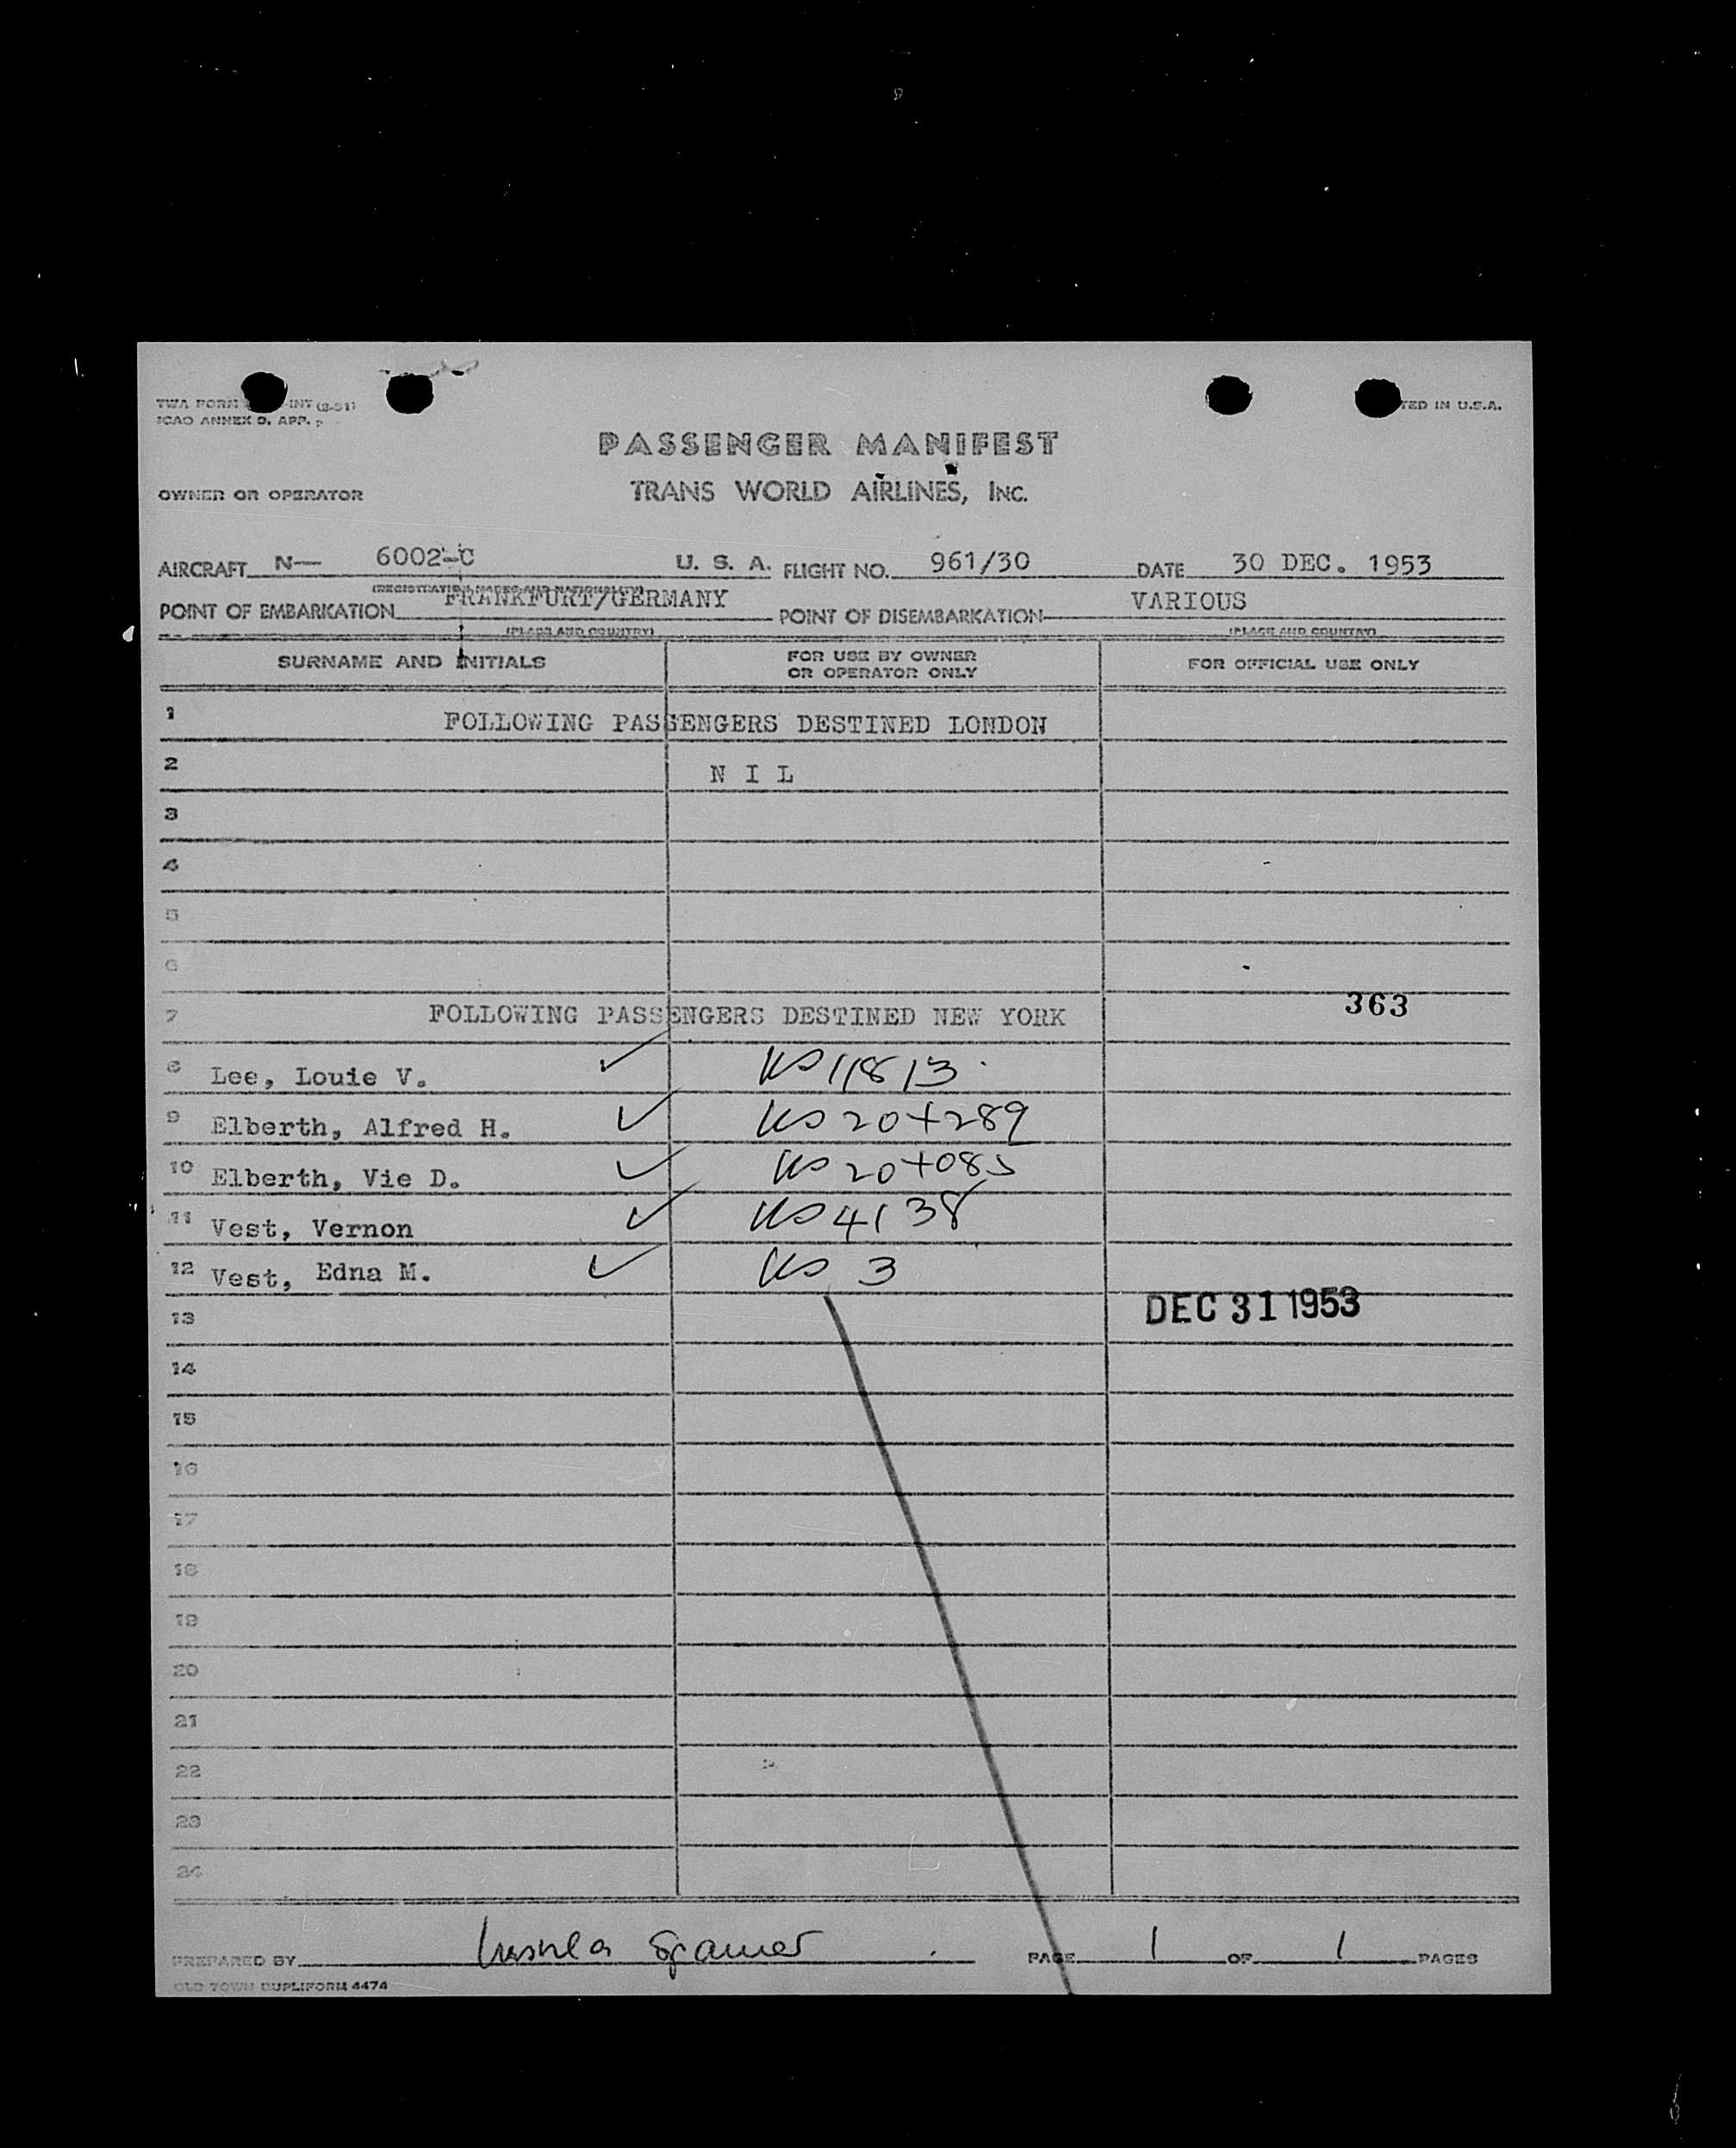 TWA FORM -INT (2-51)
TED IN U.S.A.
ICAO ANNEX 9, APP.
PASSENGER MANIFEST
OWNER OR OPERATOR TRANS WORLD AIRLINES, INC.
AIRCRAFT N— 6002-C U. S. A. FLIGHT NO. 961/30 DATE 30 DEC. 1953
(REGISTRATION MARKS AND NATIONALITY)
POINT OF EMBARKATION FRANKFURT/GERMANY POINT OF DISEMBARKATION VARIOUS
(PLACE AND COUNTRY) (PLACE AND COUNTRY)
SURNAME AND INITIALS FOR USE BY OWNER OR OPERATOR ONLY FOR OFFICIAL USE ONLY
1 FOLLOWING PASSENGERS DESTINED LONDON
2 N I L
3
4
5
6
7 FOLLOWING PASSENGERS DESTINED NEW YORK 363
8 Lee, Louie V. ✓
9 Elberth, Alfred H. ✓ 20+289
10 Elberth, Vie D. ✓ 20+085
11 Vest, Vernon ✓ 4138
12 Vest, Edna M. ✓ 3
13 DEC 31 1953
14
15
16
17
18
19
20
21
22
23
24
PREPARED BY PAGE 1 OF 1 PAGES
OLD TOWN DUPLIFORM 4474